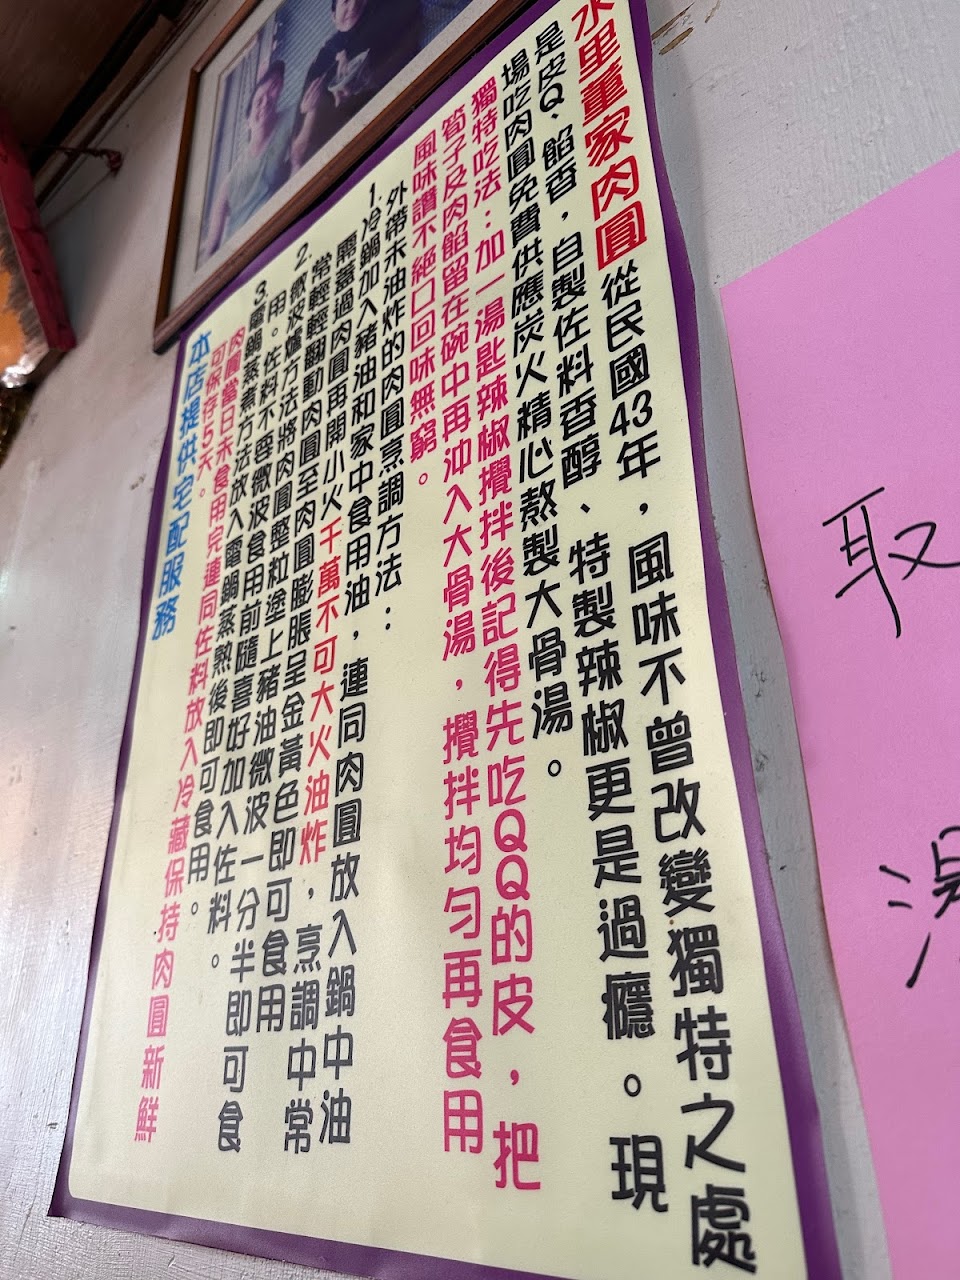 水里董家肉圓從民國43年，風味不曾改變獨特之處
是皮Q、餡香，自製佐料香醇、特製辣椒更是過癮。現
場吃肉圓免費供應炭火精心熬製大骨湯。
獨特吃法：加一湯匙辣椒攪拌後記得先吃QQ的皮，把
筍子及肉餡留在碗中再沖入大骨湯，攪拌均勻再食用
風味讚不絕口回味無窮。
外帶未油炸的肉圓烹調方法：
1.冷鍋加入豬油和家中食用油，連同肉圓放入鍋中油
需蓋過肉圓再開小火千萬不可大火油炸，烹調中常
常輕輕翻動肉圓至肉圓膨脹呈金黃色即可食用
2.微波爐方法將肉圓整粒塗上豬油微波一分半即可食
用。佐料不要微波食用前隨喜好加入佐料。
3.電鍋蒸煮方法放入電鍋蒸熱後即可食用。
肉圓當日未食用完連同佐料放入冷藏保持肉圓新鮮
可保存5天。
本店提供宅配服務
取